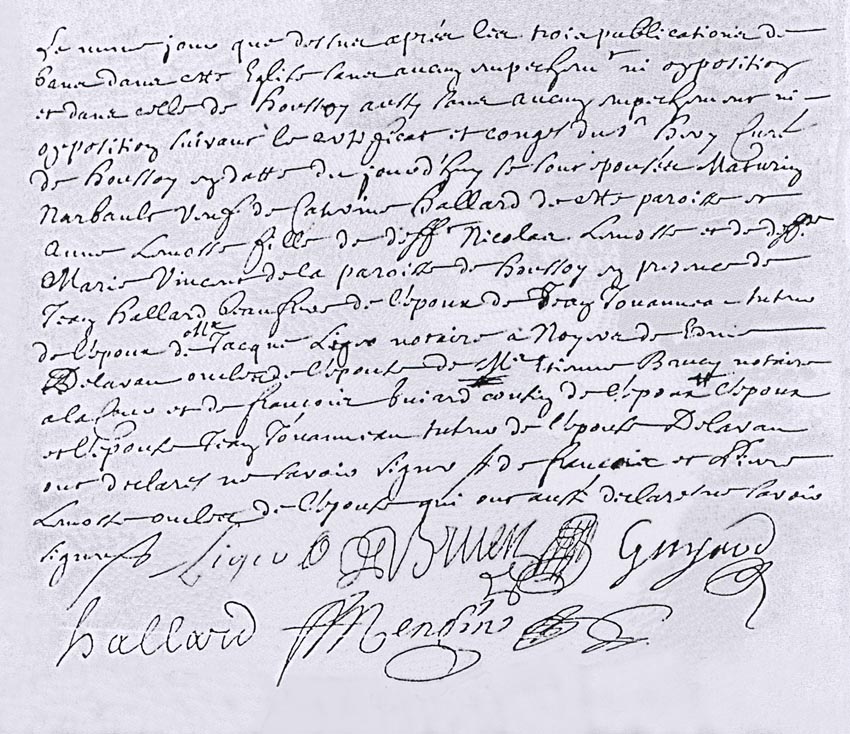 Le meme jour que dessus apres les trois publications de
bans dans cette Eglise sans aucun empechemt ni opposition
et dans celle de houssay aussy sans aucun empechement ni
opposition suivant le certificat et conges du sr hery Curé
de houssay en datte du jourd'huy se sont épousés Maturin
Narbault veuf de Caterine hallard de cette paroisse et
Anne Lemosse fille de deff Nicolas Lemosse et de deffte
Marie Vincent de la paroisse de houssay en presence de
Jean hallard beaufrere de l'epoux de Jean Jouanneau tuteur
de l'epoux de Me Jacque Liger notaire a Noyers de
Delavau oncles de l'epouse de Me Etienne Bruen notaire
a la et de francois Guiard cousin de l'epoux l'epoux
et l'epouse Jean Jouanneau tuteur de l'epouse Delavau
ont declares ne savoir signer et de francois et Pierre
Lemosse oncles de l'epouse qui ont aussi declares ne savoir
signer Liger Bruen Guyard
hallard